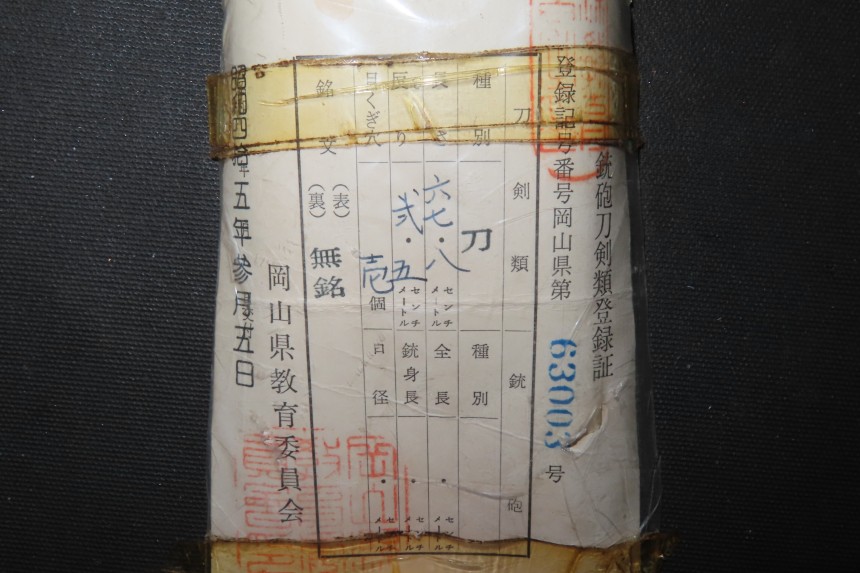 銃砲刀剣類登録証
登録記号番号岡山県第 63003 号
刀剣類 銃砲
種別 刀 種別
長さ 六七・八 センチメートル 全長 ・ センチメートル
反り 弐・五 センチメートル 銃身長 ・ センチメートル
目くぎ穴 壱 個 口径 ・ センチメートル
銘文 (表) 無銘
(裏)
岡山県教育委員会
昭和四拾五年参月五日